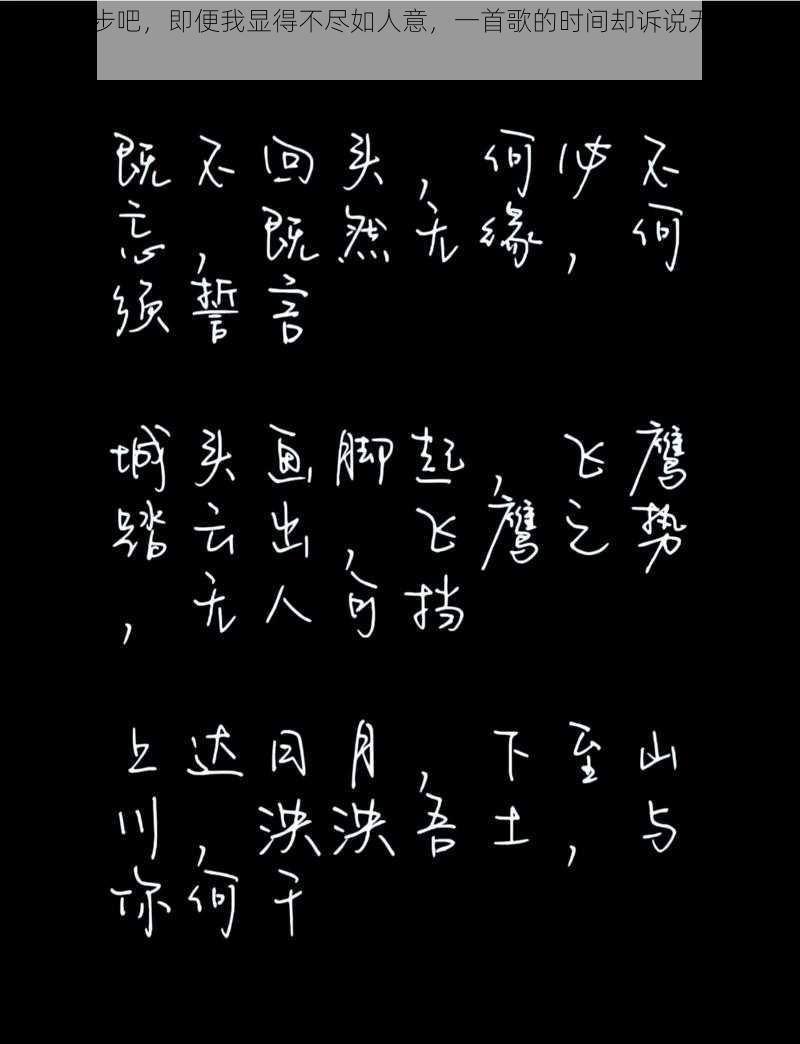 步吧，即便我显得不尽如人意，一首歌的时间却诉说无
既不回头，何必不
忘，既然无缘，何
须誓言
城头画脚起，飞鹰
踏云出，飞鹰之势
，无人可挡
上达日月，下至山
川，泱泱吾土，与
你何干